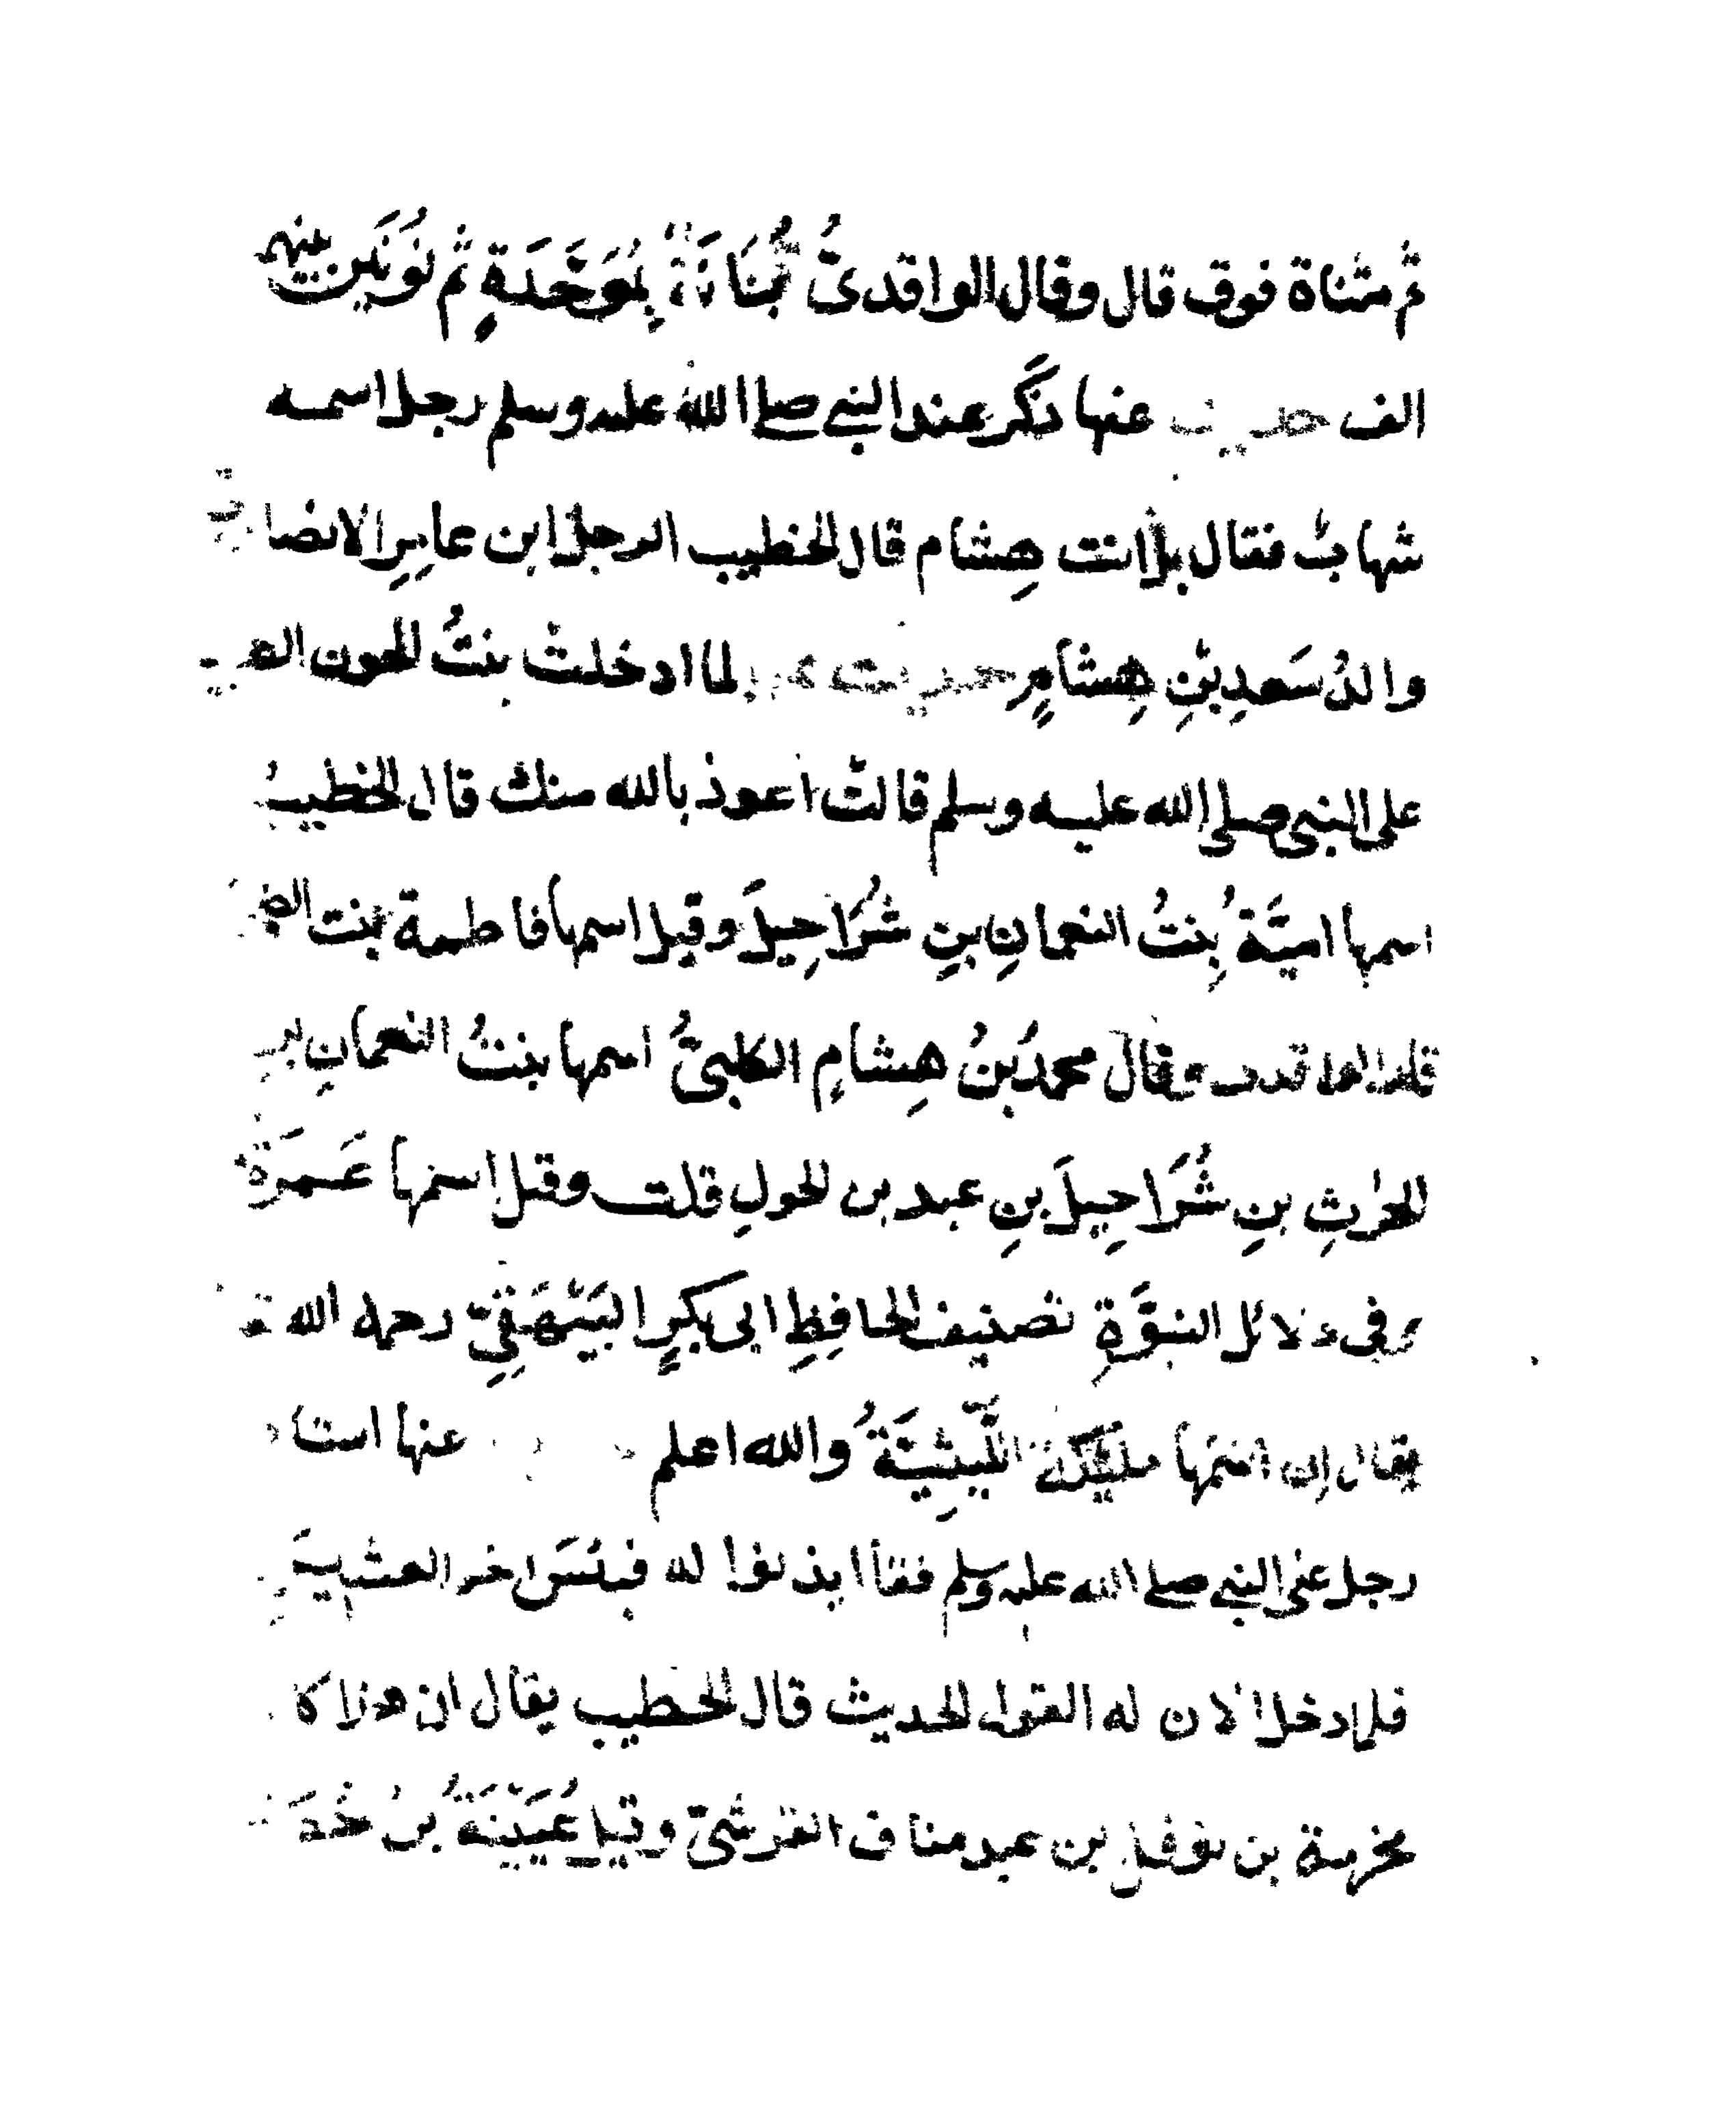 ثم مثناة فوق قال وقال الواقدىُّ بُنَانَةُ بِمُوَحَّدَةٍ ثم نُونَين بينهما
الف حديث عنها ذُكَر عند النبى صلى الله عليه وسلم رجل اسمه
شهابٌ فقال بل انت هِشام قال الخطيب الرجل ابن عامِرِ الانصا
والدُ سَعدِ بْنِ هِشَامٍ حديث لما ادخلتْ بنتُ الجون
على النبى صلى الله عليه وسلم قالتْ اعوذ بالله منك قال الخطيبُ
اسمها اميَّةُ بِنتُ النعمانِ بنِ شُرَاحِيلَ وقيل اسمها فاطمة بنت
قاله الواقدى وقال محمدُ بنُ هِشامٍ الكلبىُّ اسمها بنتُ النعمانِ بن
الحٰرثِ بنِ شُرَاحِيلَ بنِ عبد بن الجولِ قلت وقيل اسمها عَمرَةُ
وفى دلائل النبوَّةِ تصنيف الحافِظِ ابى بكرٍ البَيْهَقِىِّ رحمه الله
فقال إن اسمها مليْكَةُ اللَّيثِيَّةُ والله اعلم عنها استا
رجل على النبى صلى الله عليه وسلم فقال ايذنوا له فبئسَ اخو العشيرة
فلما دخل الان له القول الحديث قال الخطيب يقال ان هذا كا
مخرمة بن نوفل بن عبد مناف القرشىّ وقيل عُيَيْنَةُ بنُ